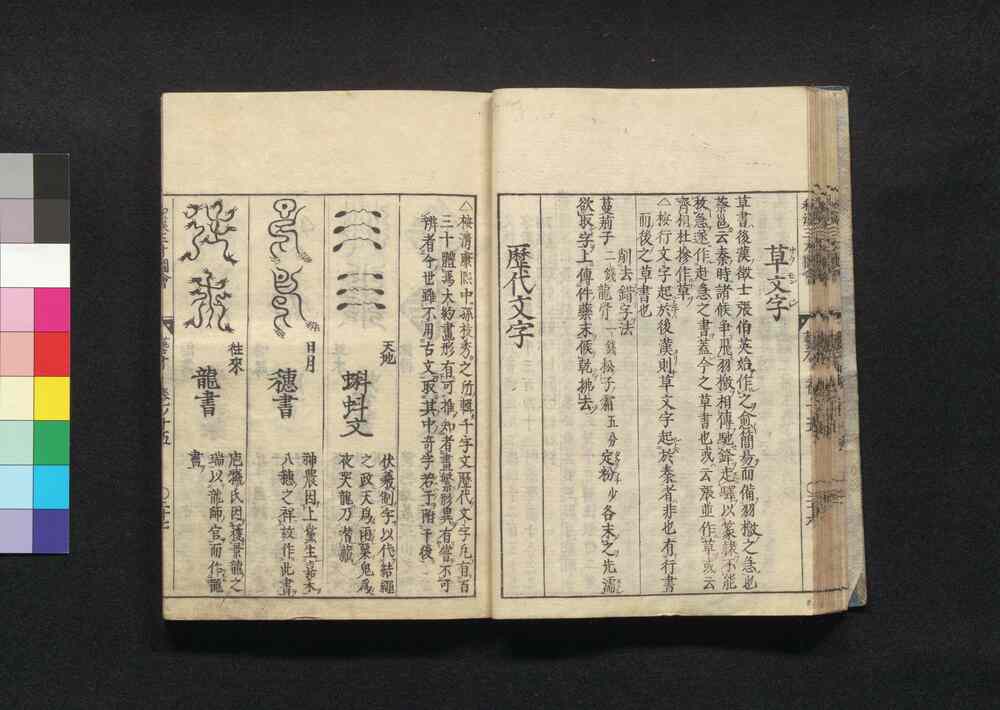 草文字
草書後漢徴士張伯英始作之愈簡易而備羽檄之急也
蔡邕云秦時諸侯争長羽檄相傳馳鋒走驛以篆隷不能
救急遂作赴急之書蓋今之草書也或云張並作草或云
齊相杜操作草
△按行文字起於後漢則草文字起於秦者非也有行書
而後之草書也
剜去錯字法
蔓荊子二錢龍骨一錢松子霜五分定粉少各末之先濡
欲取字上傅件藥末候乾拂去
歴代文字
△按清康熙中孫枝秀之所輯千字文歴代文字凡有百
三十體焉大約畫形有可推知者畫繁形異有當不可
辨者今世雖不用古文取其中奇字若干附于後
天地
蝌蚪文
伏羲制字以代結繩
之政天爲雨粟鬼爲
夜哭龍乃潜藏
日月
穗書
神農因上黨生嘉禾
八穗之祥故作此書
往來
龍書
庖犧氏因獲景龍之
瑞以龍師官而作龍
書